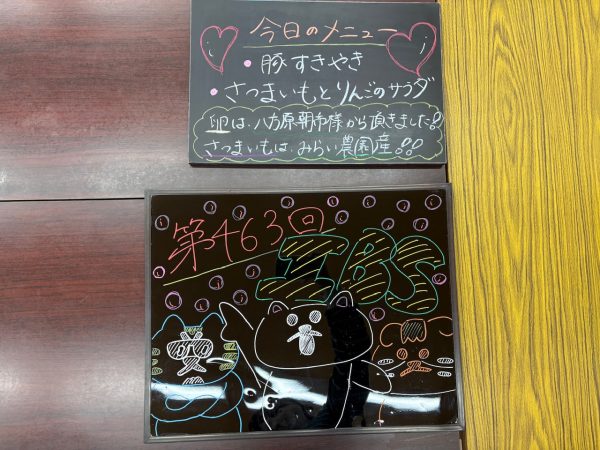 今日のメニュー
・豚すきやき
・さつまいもとりんごのサラダ
卵は、八方原朝市様から頂きました!
さつまいもは、みらい農園産!!
第463回
IBS